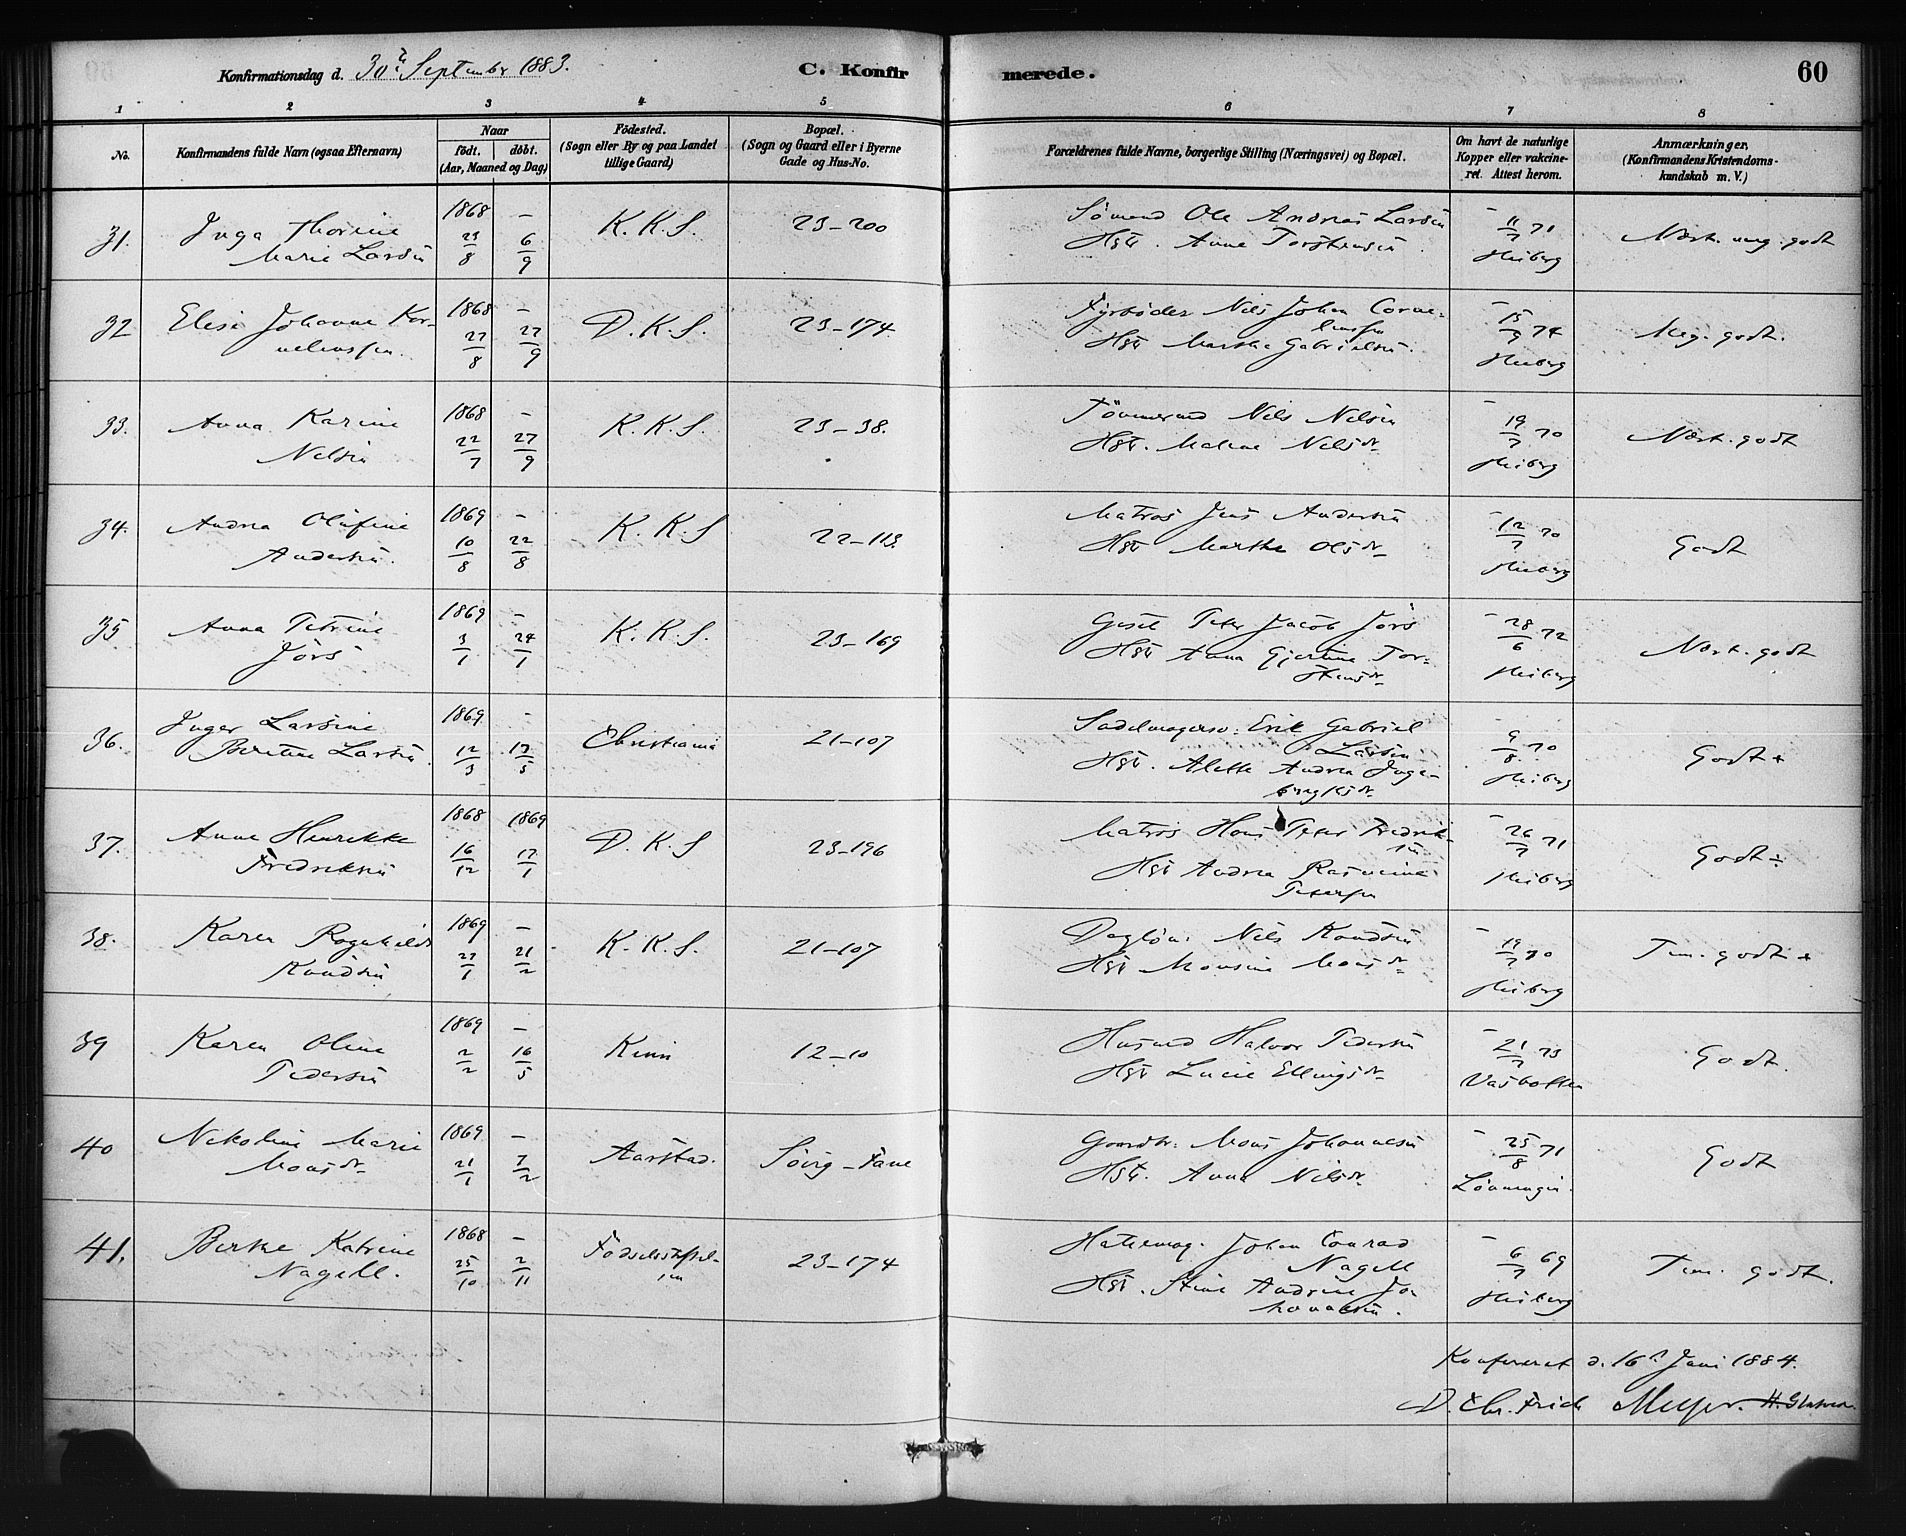 Konfirmationsdag d. 30t September 1883.
C. Konfirmerede.
60
1 2 3 4 5 6 7 8
No.
Konfirmandens fulde Navn (ogsaa Efternavn)
Naar
födt. döbt.
(Aar, Maaned og Dag)
Födested.
(Sogn eller By og paa Landet
tillige Gaard)
Bopæl.
(Sogn og Gaard eller i Byerne
Gade og Hus-No.
Forældrenes fulde Navne, borgerlige Stilling (Næringsvei) og Bopæl.
Om havt de naturlige
Kopper eller vakcine-
ret. Attest herom.
Anmærkninger,
(Konfirmandens Kristendoms-
kundskab m. V.)
31. Inga Thorine
Marie Larsen
1868 23/8 – 6/9
K. K. S.
23–200
Sömand Ole Andreas Larsen
Hstr. Anne Torstensen
– 11/7 71
Heiberg
Næst. meg. godt
32 Elise Johanne Kor-
neliussen.
1868 27/8 – 27/9
D. K. S.
23–174.
Fyrböder Nils Johan Corne-
liussen
Hstr Marthe Gabrielsen.
– 15/9 74
Heiberg
Meg. godt.
33. Anna Karine
Nelsen
1868 22/7 – 27/9
K. K. S.
23–38.
Tömmermd Nils Nilsen
Hstr. Malene Nilsdr
– 19/7 70
Heiberg
Næst. godt
34. Andrea Olufine
Andersen.
1869 10/8 – 22/8
K. K. S
22–113.
Matros Jens Andersen
Hstr Marthe Olsdr
– 12/7 70
Heiberg
Godt
35 Anna Petrine
Jörs
1869 3/1 – 24/1
K. K. S.
23–169
Gesel Peter Jacob Jörs
Hstr Anna Gjertine Tor-
stensdr
– 28/6 72
Heiberg
Næst. godt
36. Inger Larsine
Bertine Larsen.
1869 12/3 – 17/5
Christiania
21–107
Sadelmagersv. Erik Gabriel
Larsen
Hstr. Alette Andrea Inge-
brigtsdr
– 9/8 70
Heiberg
Godt +
37. Anne Henrikke
Fredriksen
1868 16/12 1869 17/1
D. K. S
23–196
Matros Hans Peter Fredrik-
sen
Hstr Andrea Rasmine
Petersen
– 26/7 71
Heiberg
Godt ÷
38. Karen Ragnhilds
Knudsen
1869 27/1 – 21/2
K. K. S.
21–107
Daglön. Nils Knudsen
Hstr Monsine Monsdr
– 19/7 70
Heiberg
Tem. godt +
39 Karen Oline
Pedersen
1869 2/2 – 16/5
Kinn
12–10
Husmd Halvor Pedersen
Hstr Lucie Ellingsdr
– 21/7 73
Vasbotten
Godt.
40 Nikoline Marie
Monsdr
1869 21/1 – 7/2
Aarstad.
Söirg–Fane
Gaardbr. Mons Johannesen
Hstr. Anna Nilsdr
– 25/8 71
Lönningen.
Godt
41. Berthe Katrine
Nagell.
1868 25/10 – 2/11
Födselsstiftel-
sen
23–174
Hattemag. Johan Conrad
Nagell
Hstr. Stine Andrine Jo-
hannesen.
– 6/7 69
Heiberg
Tem. godt.
Konfereret d. 16t Juni 1884.
D. Chr. Frich Meyer.